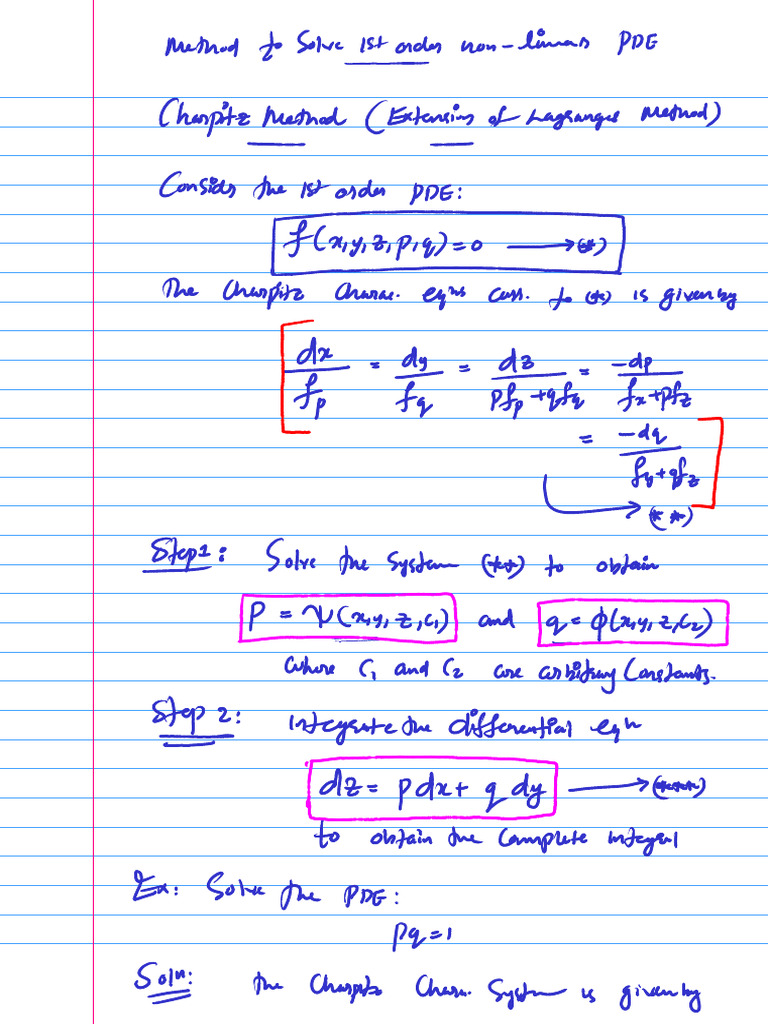 Method to Solve 1st order non-linear PDE
Charpitz Method (Extension of Lagranges Method)
Consider the 1st order PDE:
f(x,y,z,p,q)=0 ⟶(*)
The Charpitz Charac. eqns corr. to (*) is given by
dx/f_p = dy/f_q = dz/(pf_p+qf_q) = -dp/(f_x+pf_z)
= -dq/(f_y+qf_z)
⟶(**)
Step1: Solve the System (**) to obtain
P = ψ(x,y,z,c₁) and q=ϕ(x,y,z,c₂)
where C₁ and C₂ are arbitrary Constants.
Step 2: integrate the differential eqn
dz = pdx + q dy ⟶(***)
to obtain the complete integral
Ex: Solve the PDE:
pq=1
Soln: The Charpitz Charac. System is given by